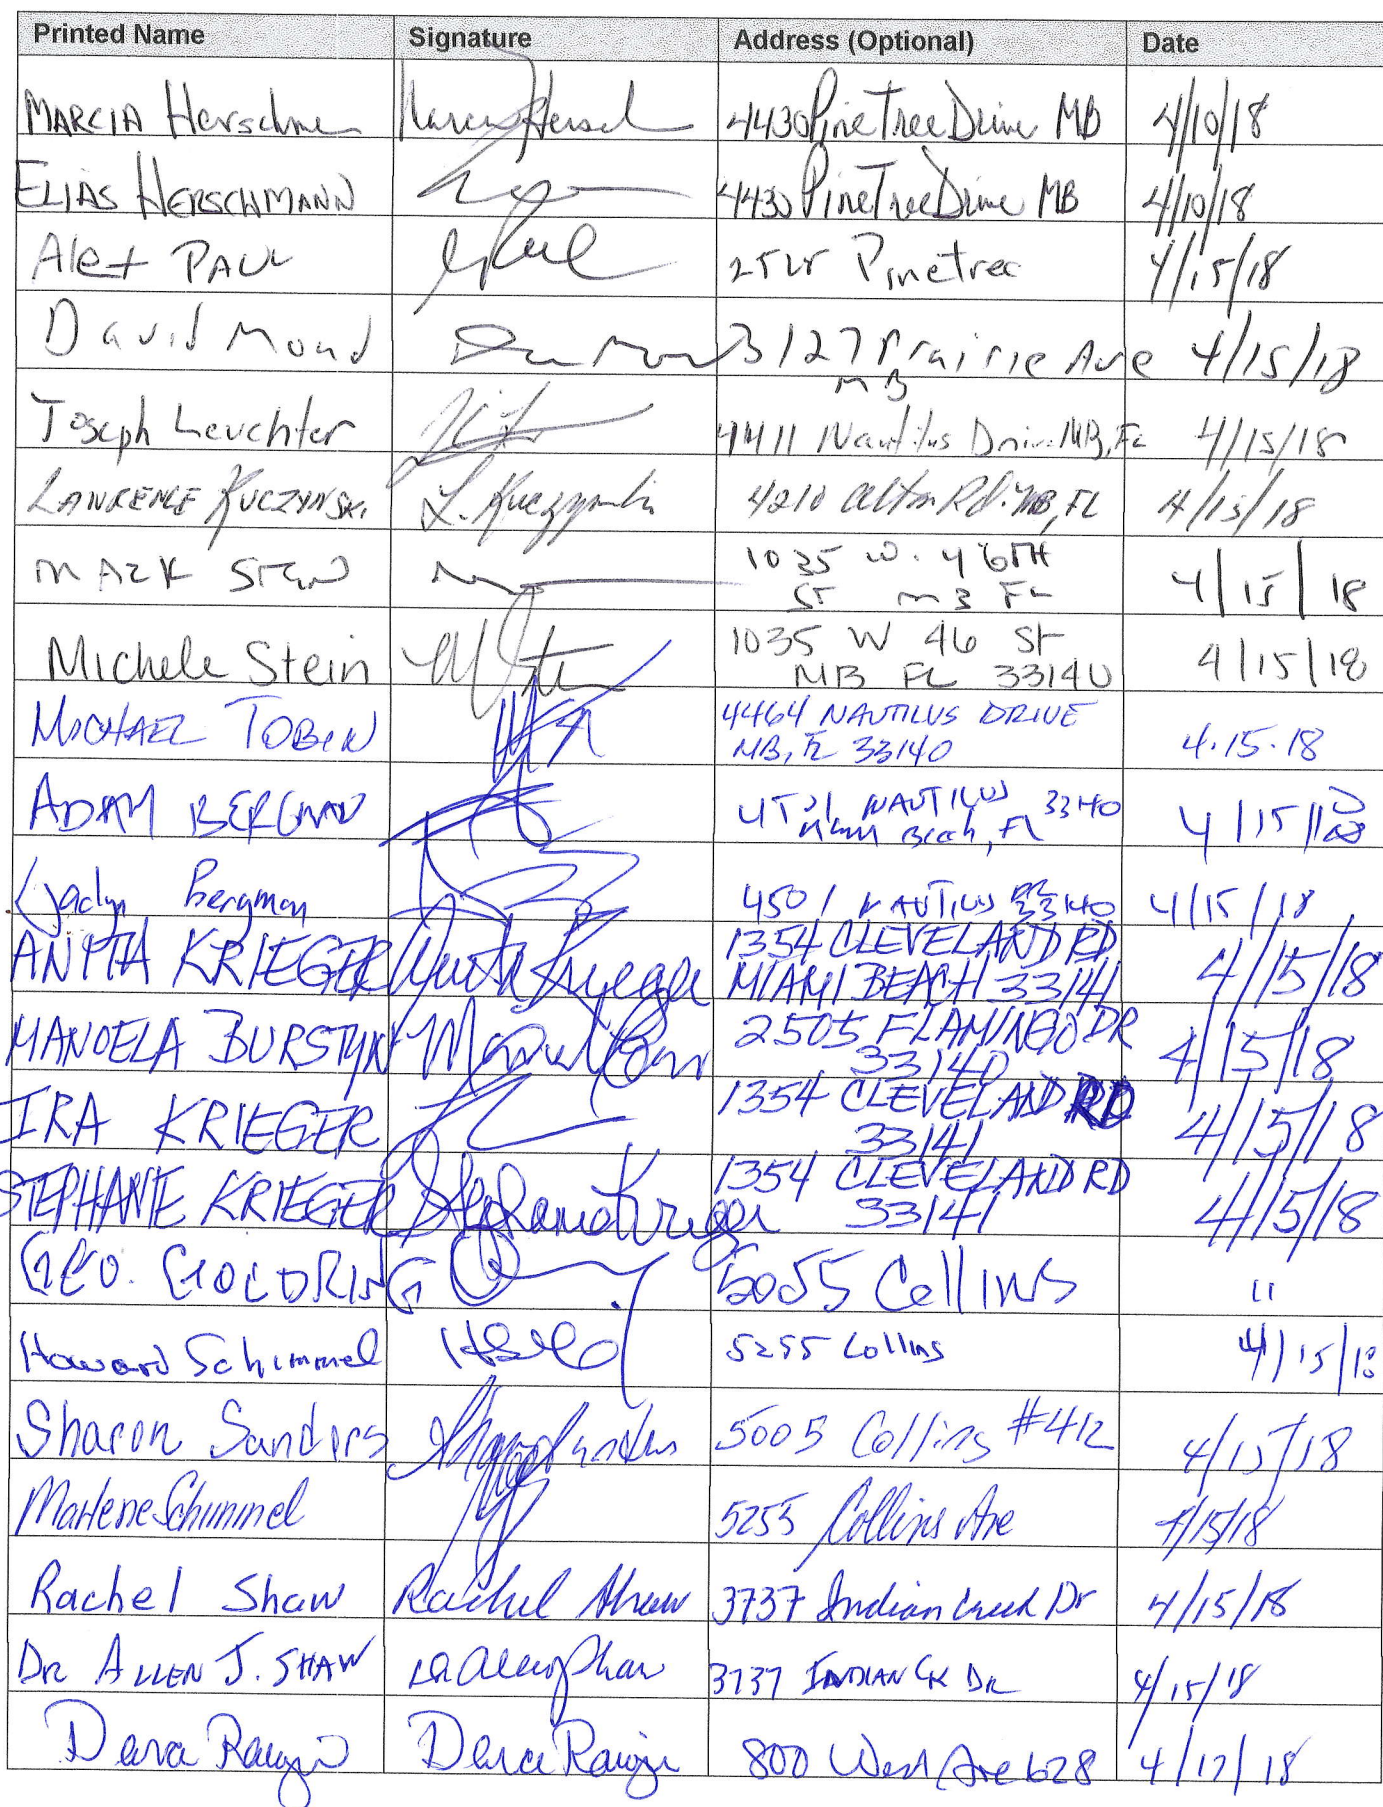 Printed Name Signature Address (Optional) Date
MARCIA Herschmann 4430 Pine Tree Drive MB 4/10/18
ELIAS HERSCHMANN 4430 Pine Tree Drive MB 4/10/18
Alex PAUL Pinetree 4/15/18
David Mond 3127 Prairie Ave 4/15/18
MB
Joseph Leuchter 4411 Nautilus Drive MB, FL 4/15/18
LAWRENCE KUCZYNSKI L. Kuczynski 4210 Alton Rd. MB, FL 4/15/18
MARK STEIN 1035 W. 46TH 4/15/18
ST MB FL
Michele Stein 1035 W 46 St 4/15/18
MB FL 33140
MICHAEL TOBIN 4464 NAUTILUS DRIVE 4.15.18
MB, FL 33140
ADAM BERGMAN NAUTILUS 33140 4/15/18
Miami Beach, FL
Jaclyn Bergman 4501 NAUTILUS DR 4/15/18
33140
ANITA KRIEGER Anita Krieger 1354 CLEVELAND RD 4/15/18
MIAMI BEACH 33141
MANOELA BURSTYN 2505 FLAMINGO DR 4/15/18
33140
IRA KRIEGER 1354 CLEVELAND RD 4/15/18
33141
STEPHANIE KRIEGER Stephanie Krieger 1354 CLEVELAND RD 4/15/18
33141
GEO. GOLDRING 5055 Collins "
Howard Schimmel 5255 Collins 4/15/18
Sharon Sanders Sharon Sanders 5005 Collins #412 4/15/18
Marlene Schimmel 5255 Collins Ave 4/15/18
Rachel Shaw Rachel Shaw 3737 Indian Creek Dr 4/15/18
DR ALLEN J. SHAW Dr Allen J Shaw 3737 INDIAN CK DR 4/15/18
800 West Ave 628 4/17/18